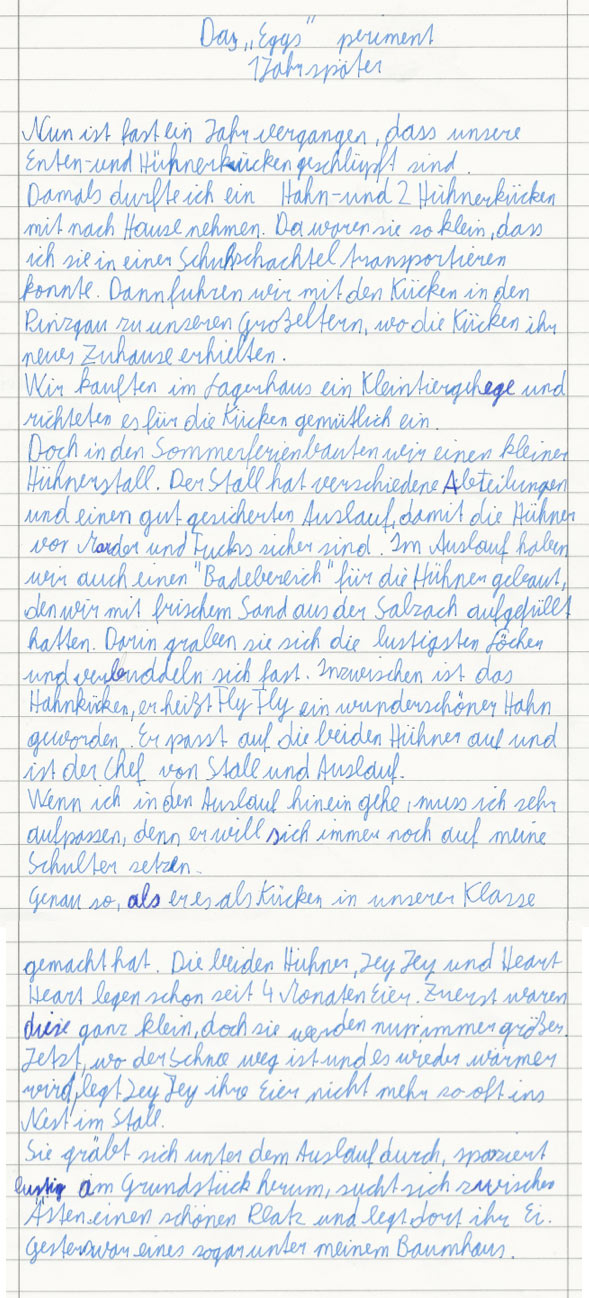 Das „Eggs" periment
1 Jahr später
Nun ist fast ein Jahr vergangen, dass unsere
Enten- und Hühnerkücken geschlüpft sind.
Damals durfte ich ein Hahn- und 2 Hühnerkücken
mit nach Hause nehmen. Da waren sie so klein, dass
ich sie in einer Schuhschachtel transportieren
konnte. Dann fuhren wir mit den Kücken in den
Pinzgau zu unseren Großeltern, wo die Kücken ihr
neues Zuhause erhielten.
Wir kauften im Lagerhaus ein Kleintiergehege und
richteten es für die Kücken gemütlich ein.
Doch in den Sommerferien bauten wir einen kleinen
Hühnerstall. Der Stall hat verschiedene Abteilungen
und einen gut gesicherten Auslauf, damit die Hühner
vor Marder und Fuchs sicher sind. Im Auslauf haben
wir auch einen "Badebereich" für die Hühner gebaut,
den wir mit frischem Sand aus der Salzach aufgefüllt
hatten. Darin graben sie sich die lustigsten Löcher
und verbuddeln sich fast. Inzwischen ist das
Hahnkücken, er heißt Fly Fly ein wunderschöner Hahn
geworden. Er passt auf die beiden Hühner auf und
ist der Chef von Stall und Auslauf.
Wenn ich in den Auslauf hinein gehe, muss ich sehr
aufpassen, denn er will sich immer noch auf meine
Schulter setzen.
Genau so, als er es als Kücken in unserer Klasse
gemacht hat. Die beiden Hühner, Jey Jey und Heart
Heart legen schon seit 4 Monaten Eier. Zuerst waren
diese ganz klein, doch sie werden nun immer größer.
Jetzt, wo der Schnee weg ist und es wieder wärmer
wird, legt Jey Jey ihre Eier nicht mehr so oft ins
Nest im Stall.
Sie gräbt sich unter dem Auslauf durch, spaziert
lustig am Grundstück herum, sucht sich zwischen
Ästen einen schönen Platz und legt dort ihr Ei.
Gestern war eines sogar unter meinem Baumhaus.